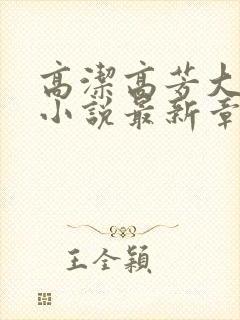 高潔高芳大
小說最新章
王全穎